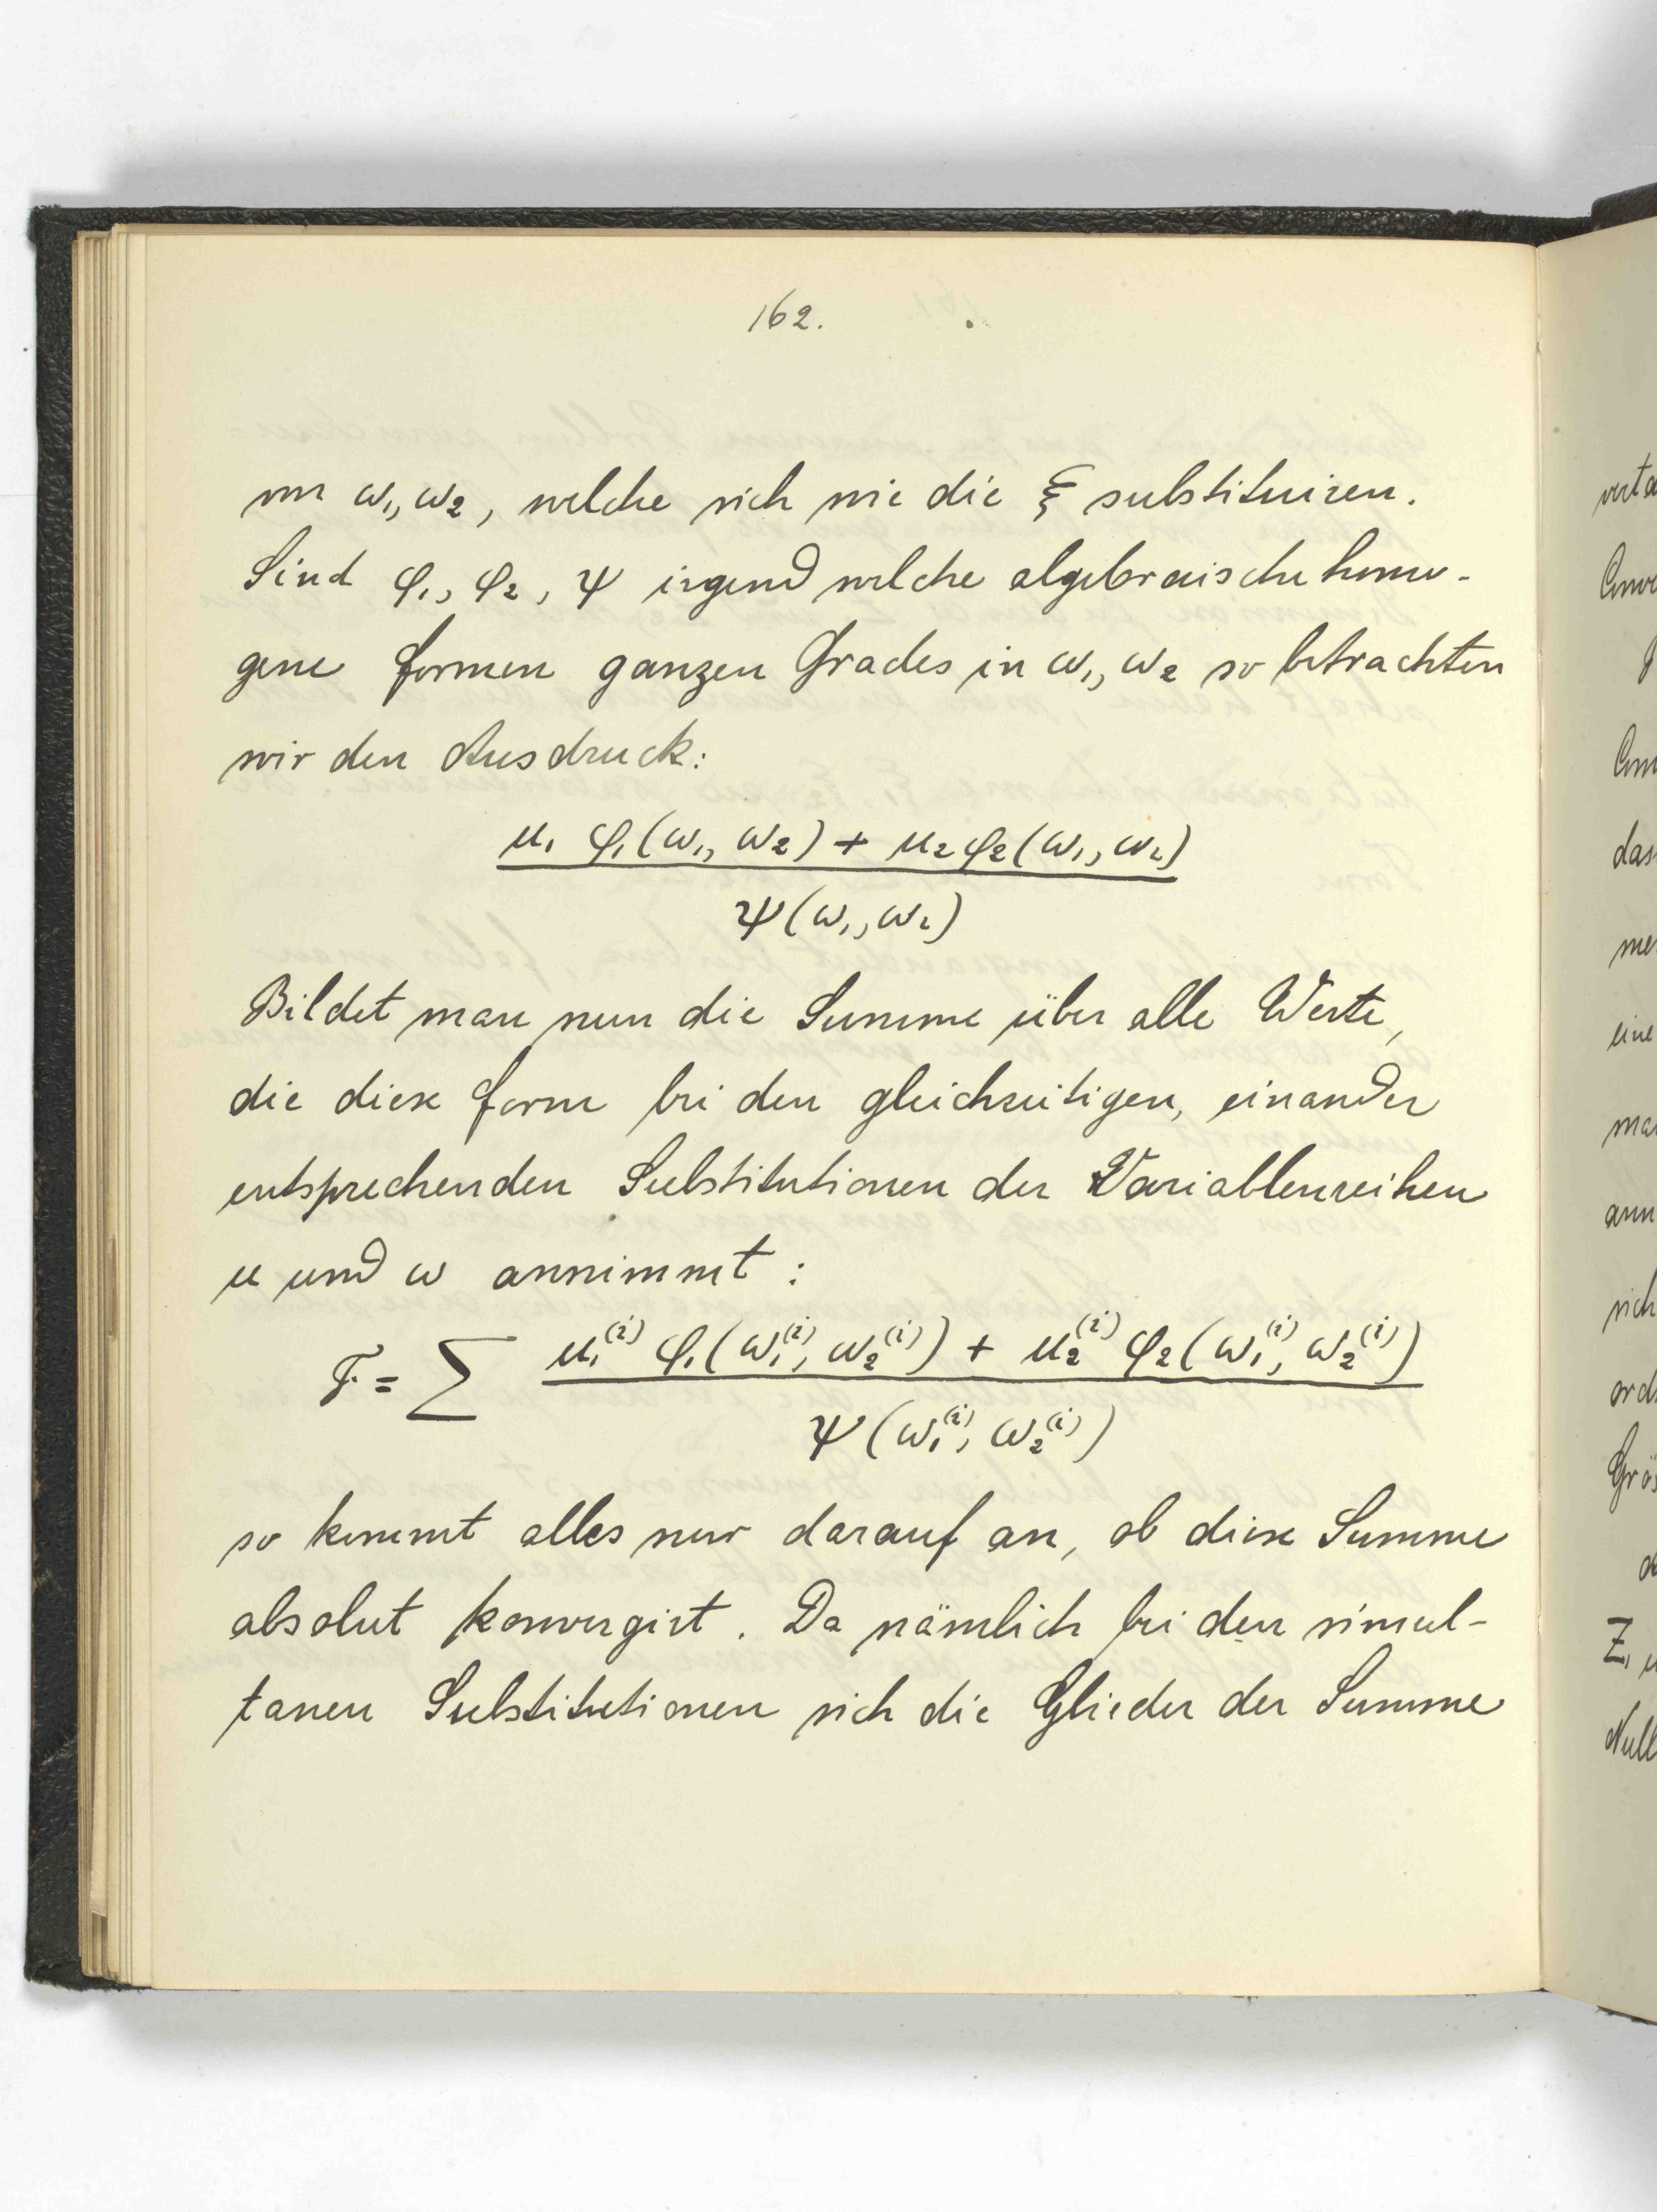 162.
von ω₁, ω₂, welche sich wie die ξ substituiren.
Sind φ₁, φ₂, ψ irgend welche algebraische homo-
gene Formen ganzen Grades in ω₁, ω₂ so betrachten
wir den Ausdruck:
u₁ φ₁(ω₁, ω₂) + u₂ φ₂(ω₁, ω₂)
ψ(ω₁, ω₂)
Bildet man nun die Summe über alle Werte,
die diese Form bei den gleichzeitigen, einander
entsprechenden Substitutionen der Variablenreihen
u und ω annimmt:
F = ∑ u₁⁽ⁱ⁾ φ₁(ω₁⁽ⁱ⁾, ω₂⁽ⁱ⁾) + u₂⁽ⁱ⁾ φ₂(ω₁⁽ⁱ⁾, ω₂⁽ⁱ⁾)
ψ(ω₁⁽ⁱ⁾, ω₂⁽ⁱ⁾)
so kommt alles nur darauf an, ob diese Summe
absolut konvergirt. Da nämlich bei den simul-
tanen Substitutionen sich die Glieder der Summe
das
eine
sich